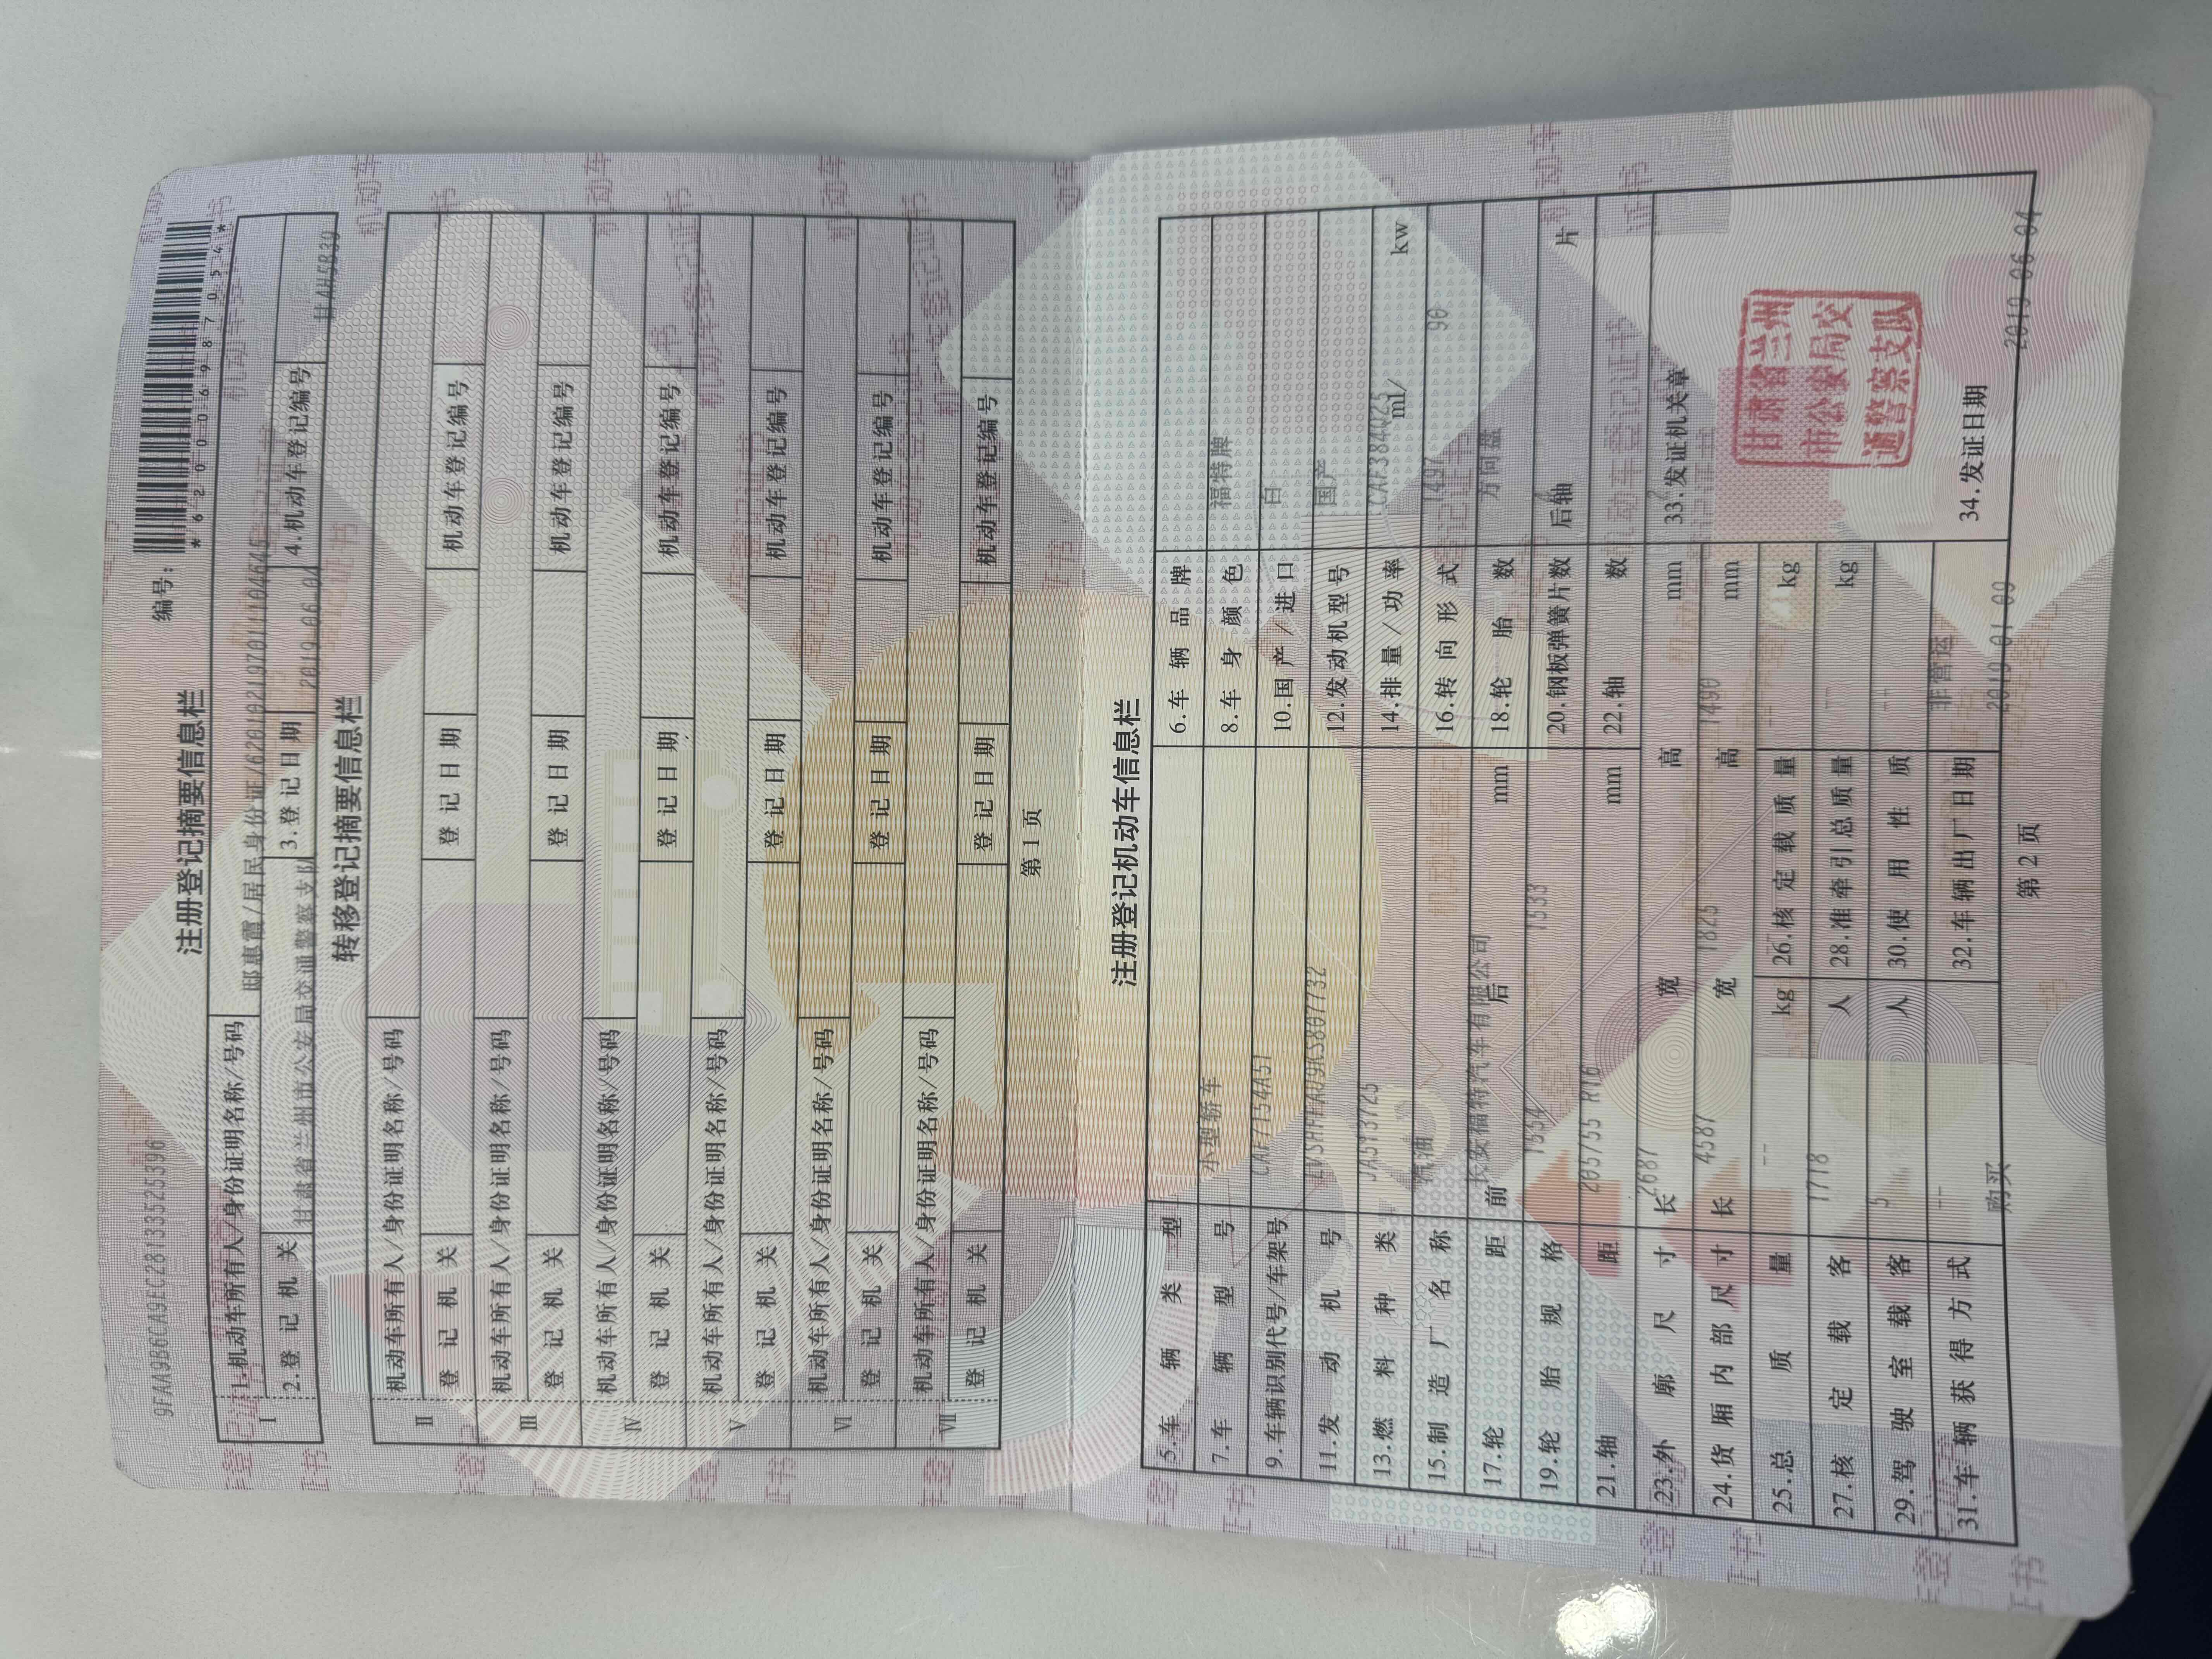 9FAA9B6CA9EC281335251396
编号：
*620006987054*
注册登记摘要信息栏
Ⅰ 1.机动车所有人/身份证明名称/号码 邸惠霞/居民身份证/620102197011104645
2.登记机关 甘肃省兰州市公安局交通警察支队 3.登记日期 2019-06-04 4.机动车登记编号 甘AH5B39
转移登记摘要信息栏
Ⅱ 机动车所有人/身份证明名称/号码
登记机关 登记日期 机动车登记编号
Ⅲ 机动车所有人/身份证明名称/号码
登记机关 登记日期 机动车登记编号
Ⅳ 机动车所有人/身份证明名称/号码
登记机关 登记日期 机动车登记编号
Ⅴ 机动车所有人/身份证明名称/号码
登记机关 登记日期 机动车登记编号
Ⅵ 机动车所有人/身份证明名称/号码
登记机关 登记日期 机动车登记编号
Ⅶ 机动车所有人/身份证明名称/号码
登记机关 登记日期 机动车登记编号
第1页
注册登记机动车信息栏
5.车辆类型 小型轿车 6.车辆品牌 福特牌
7.车辆型号 CAF7154A51 8.车身颜色 白
9.车辆识别代号/车架号 10.国产/进口 国产
11.发动机号 JA593725 12.发动机型号 CAF384Q25
13.燃料种类 汽油 14.排量/功率 1497 ml/ 90 kw
15.制造厂名称 长安福特汽车有限公司 16.转向形式 方向盘
17.轮距 前 1554 后 1533 mm 18.轮胎数 4
19.轮胎规格 205/55 R16 20.钢板弹簧片数 后轴 片
21.轴距 2687 mm 22.轴数 2
23.外廓尺寸 长 4587 宽 1825 高 1490 mm 33.发证机关章
24.货厢内部尺寸 长 -- 宽 高 -- mm
25.总质量 1718 kg 26.核定载质量 -- kg
27.核定载客 5 人 28.准牵引总质量 -- kg
29.驾驶室载客 -- 人 30.使用性质 非营运
31.车辆获得方式 购买 32.车辆出厂日期 2019-01-09 34.发证日期 2019-06-04
甘肃省兰州
市公安局交
通警察支队
第2页